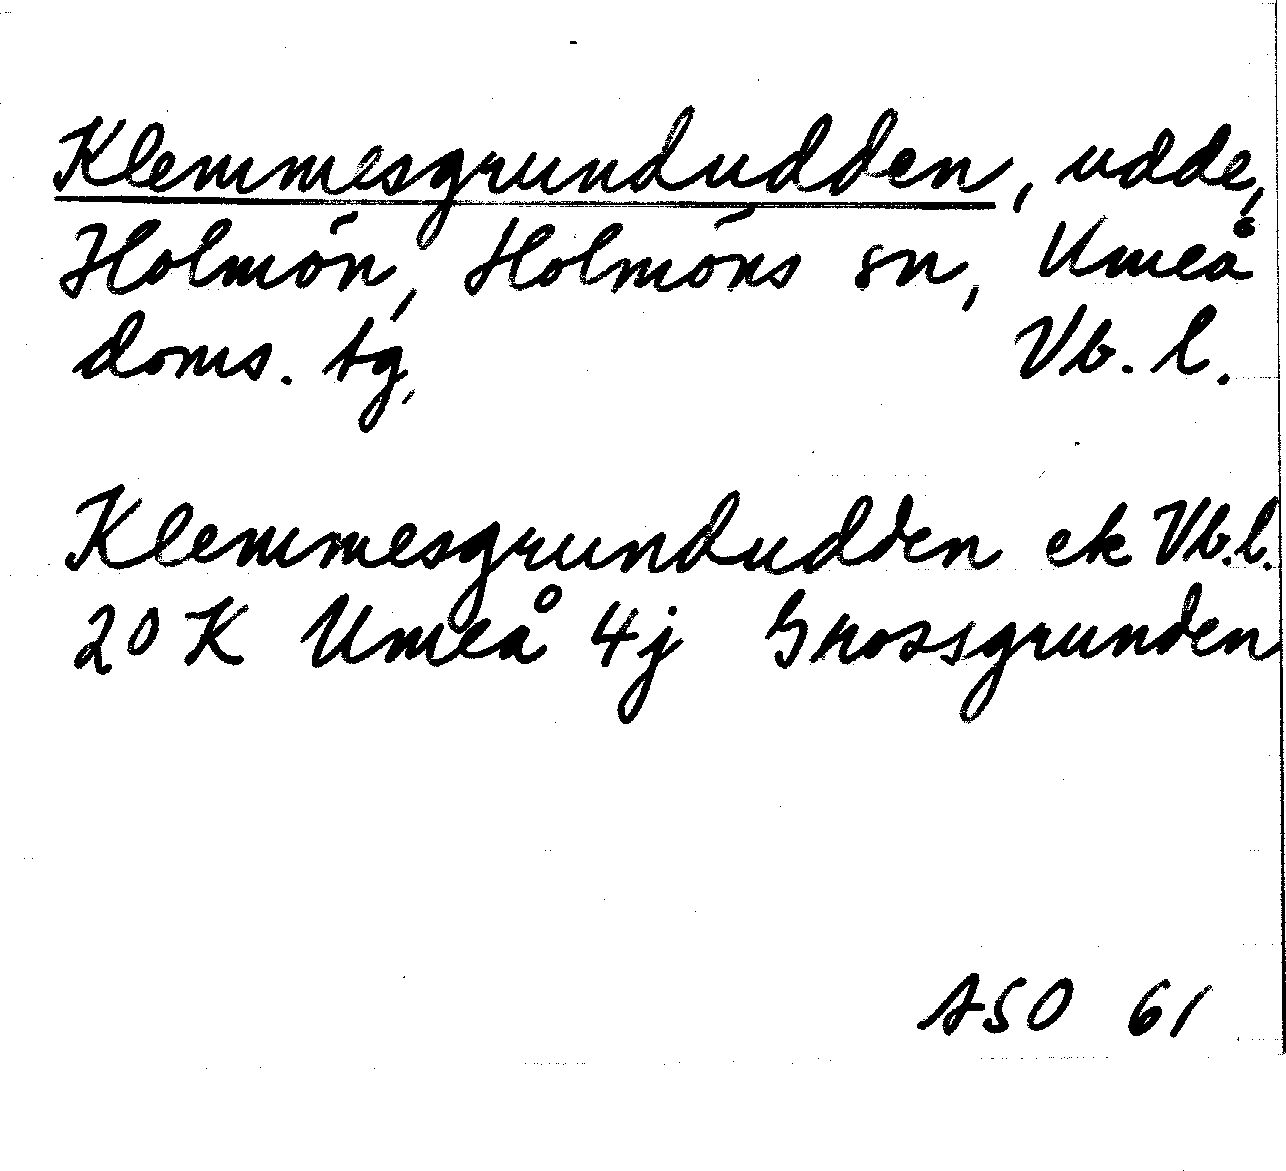 Klemmesgrundudden, udde,
Holmön, Holmöns sn, Umeå
doms. tg, Vb. l.
Klemmesgrundudden ek Vb.l.
20 K Umeå 4j Grossgrunden
ASO 61